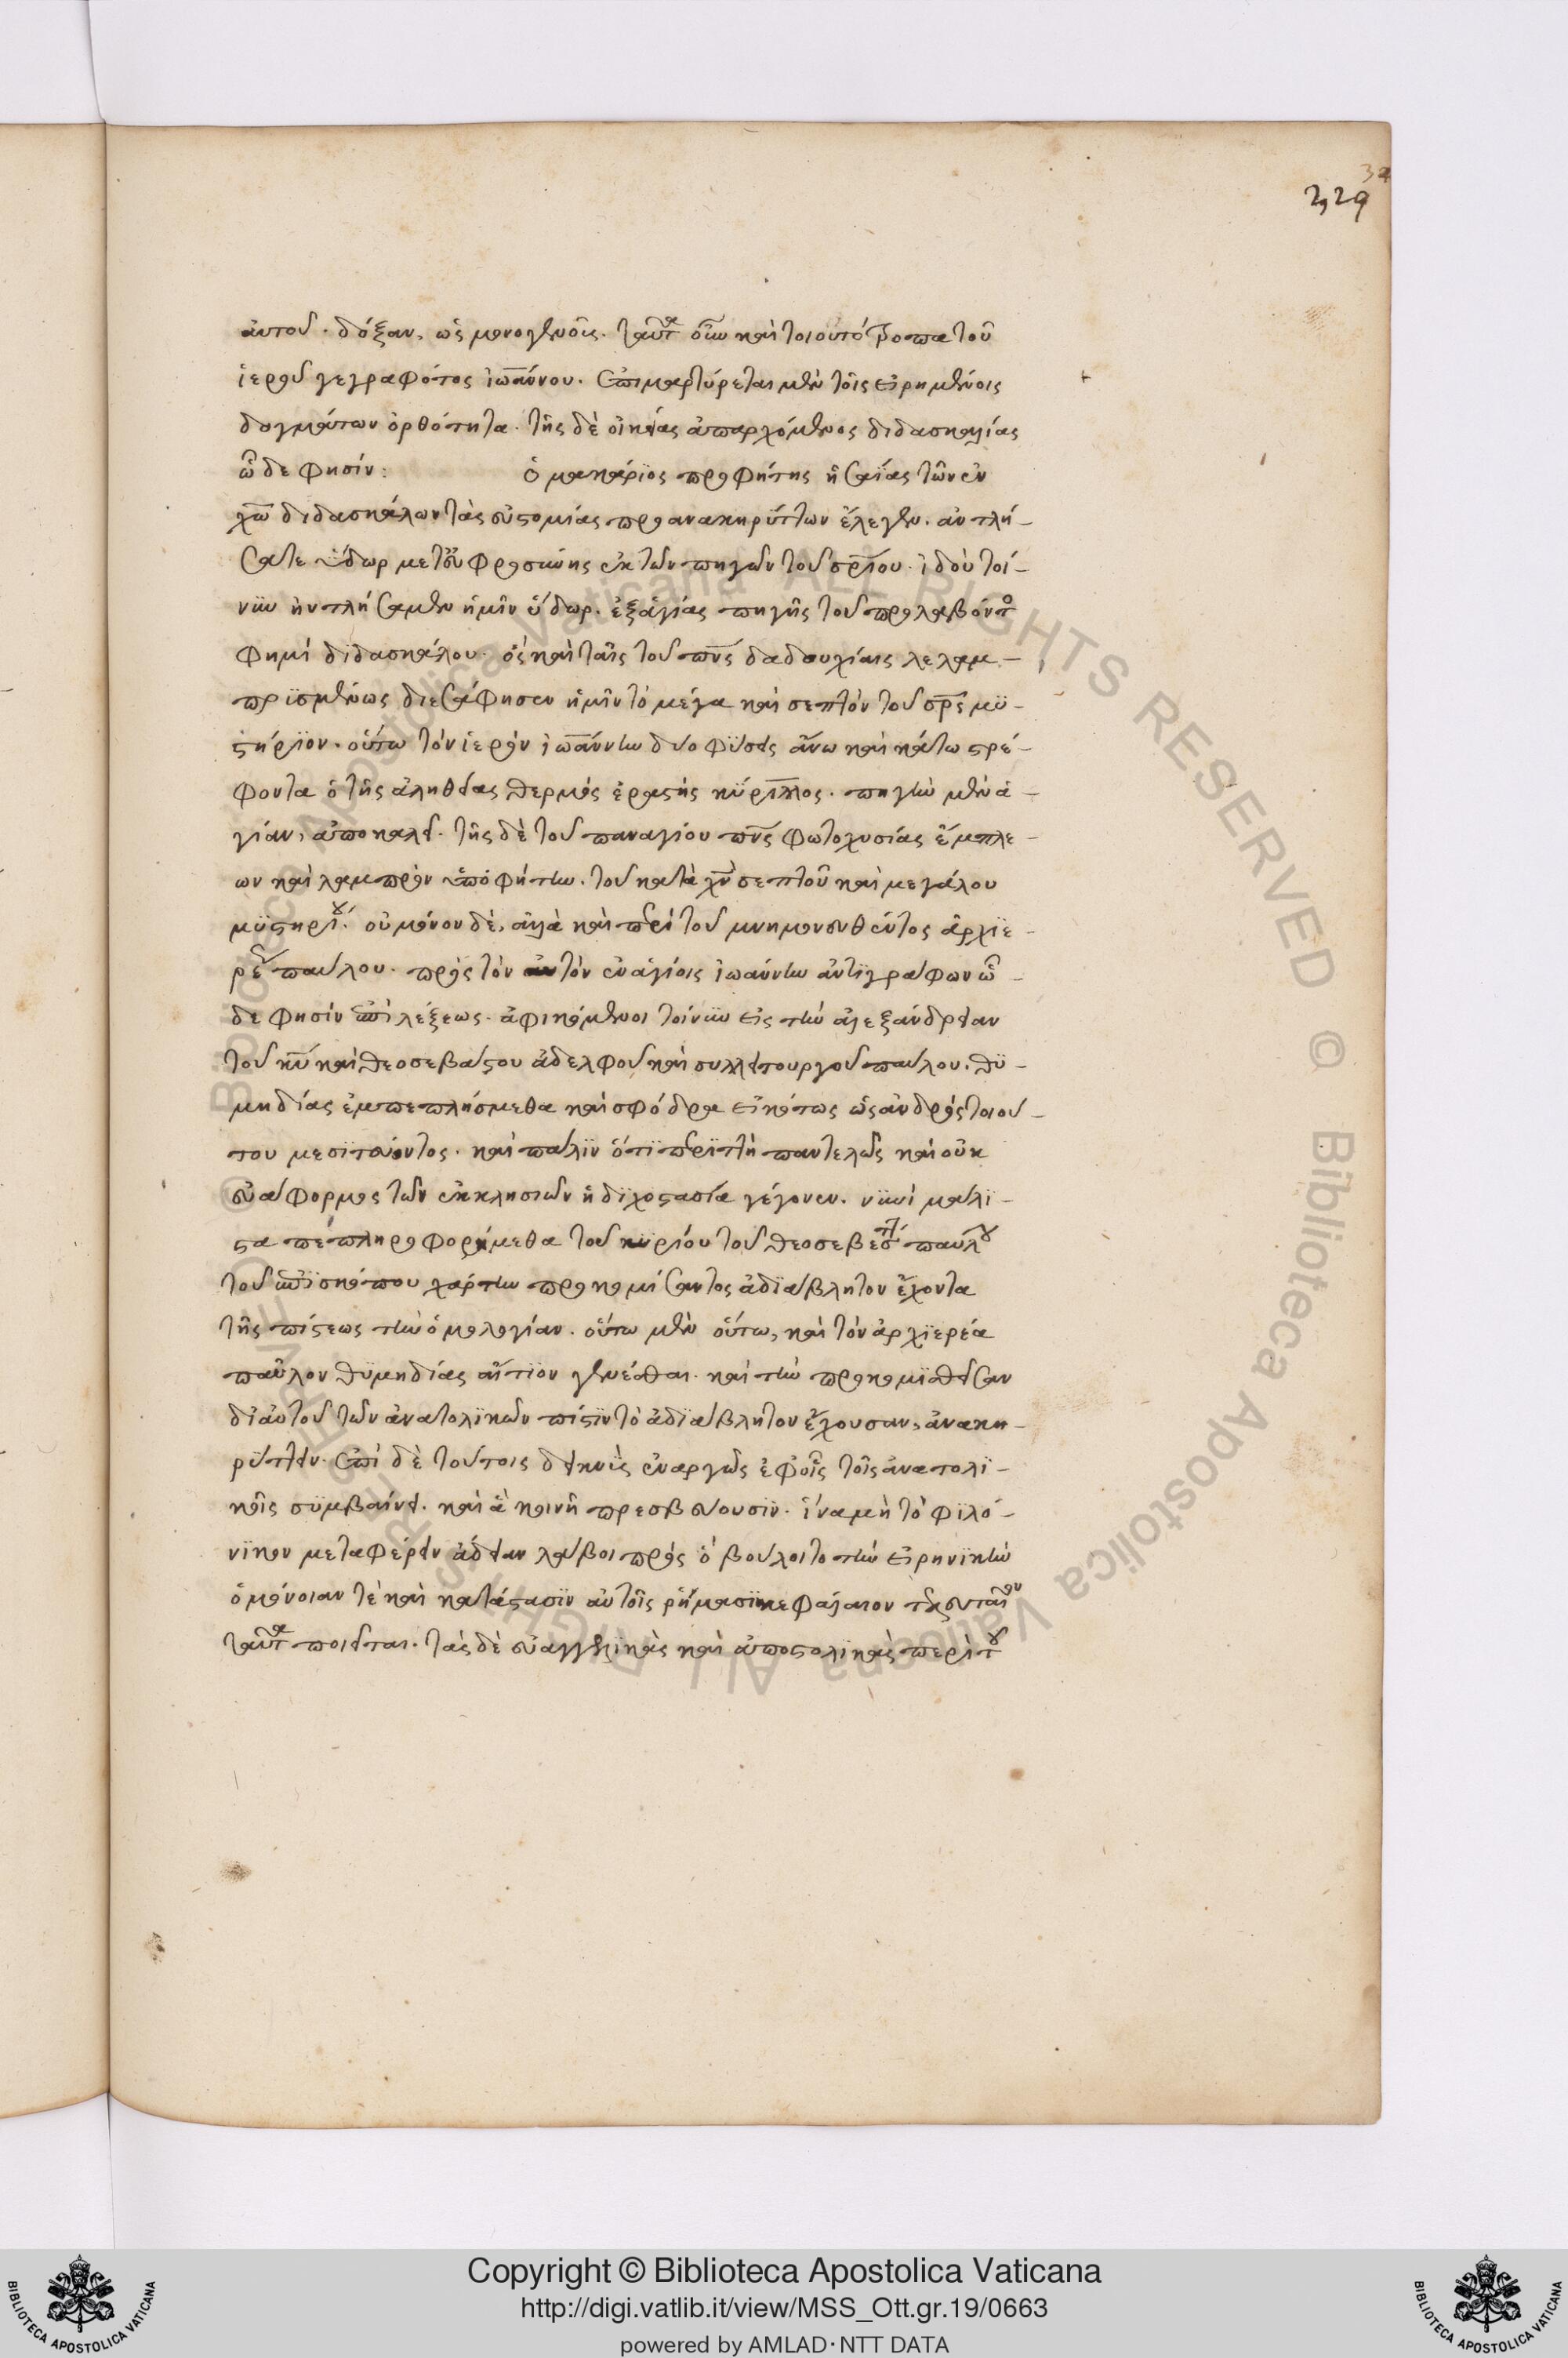 329
αὐτοῦ. δόξαν, ὡς μονογενοῦς. ταῦτα οὖν καὶ τοιουτότροπα τοῦ
ἱεροῦ γεγραφότος ἰωάννου. ἐπιμαρτύρεται μὲν τοῖς εἰρημένοις
δογμάτων ὀρθότητα. τῆς δὲ οἰκείας ἀπαρχόμενος διδασκαλίας
ὧδε φησίν: ὁ μακάριος προφήτης ἡσαΐας τῶν ἐν
χω διδασκάλων τὰς εὐστομίας προανακηρύττων ἔλεγεν. ἀντλή-
σατε ὕδωρ μετ' εὐφροσύνης ἐκ τῶν πηγῶν τοῦ σρίου. ἰδοὺ τοί-
νυν ἠντλήσαμεν ἡμῖν ὕδωρ. ἐξ ἁγίας πηγῆς τοῦ προλαβόντος
φημὶ διδασκάλου. ὃς καὶ ταῖς τοῦ πνς δαδουχίαις λελαμ-
πρισμένως διεσάφησεν ἡμῖν τὸ μέγα καὶ σεπτὸν τοῦ σρς μϋ-
στήριον. οὕτω τὸν ἱερὸν ἰωάννην δύο φύσεις ἄνω καὶ κάτω στρέ-
φοντα ὁ τῆς ἀληθείας θερμὸς ἐραστὴς κύριλλος. πηγὴν μὲν ἁ-
γίαν, ἀποκαλεῖ. τῆς δὲ τοῦ παναγίου πνς φωτοχυσίας ἔμπλε-
ων καὶ λαμπρὸν ὑποφήτην. τοῦ κατὰ χν σεπτοῦ καὶ μεγάλου
μυστηρίου. οὐ μόνον δὲ, ἀλλὰ καὶ περὶ τοῦ μνημονευθέντος ἀρχιε-
ρέως παύλου. πρὸς τὸν αὐτὸν ἐν ἁγίοις ἰωάννην ἀντιγράφων ὧ-
δε φησὶν ἐπὶ λέξεως. ἀφικόμενοι τοίνυν εἰς τὴν ἀλεξάνδρειαν
τοῦ κυ καὶ θεοσεβάστου ἀδελφοῦ καὶ συλλειτουργοῦ παύλου. θυ-
μηδίας ἐμπεπλήσμεθα καὶ σφόδρα εἰκότως ὡς ἀνδρὸς τοιού-
του μεσιτεύοντος. καὶ πάλιν ὅτι περιττὴ παντελῶς καὶ οὐκ
εὐάφορμος τῶν ἐκκλησιῶν ἡ διχοστασία γέγονεν. νυνὶ μάλι-
στα πεπληροφορήμεθα τοῦ κυρίου τοῦ θεοσεβεστ παύλου
τοῦ ἐπισκόπου χάρτην προκομίσαντος ἀδιάβλητον ἔχοντα
τῆς πίστεως τὴν ὁμολογίαν. οὕτω μὲν οὕτω, καὶ τὸν ἀρχιερέα
παῦλον θυμηδίας αἴτιον γενέσθαι. καὶ τὴν προκομισθεῖσαν
δι' αὐτοῦ τῶν ἀνατολικῶν πίστιν τὸ ἀδιάβλητον ἔχουσαν, ἀνακη-
ρύττειν. ἐπὶ δὲ τούτοις δεικνὺς ἐναργῶς ἐφ' οἷς τοῖς ἀνατολι-
κοῖς συμβαίνει. καὶ ἃ κοινῇ πρεσβεύουσιν. ἵνα μὴ τὸ φιλό-
νικον μεταφέρειν ἄδειαν λάβοι πρὸς ὃ βούλοιτο τὴν εἰρηνικὴν
ὁμόνοιαν τὲ καὶ κατάστασιν αὐτοῖς ῥήμασιν κεφάλαιον
ταῦτα ποιεῖται. τὰς δὲ εὐαγγελικὰς καὶ ἀποστολικὰς περὶ τοῦ
Copyright © Biblioteca Apostolica Vaticana
http://digi.vatlib.it/view/MSS_Ott.gr.19/0663
powered by AMLAD·NTT DATA